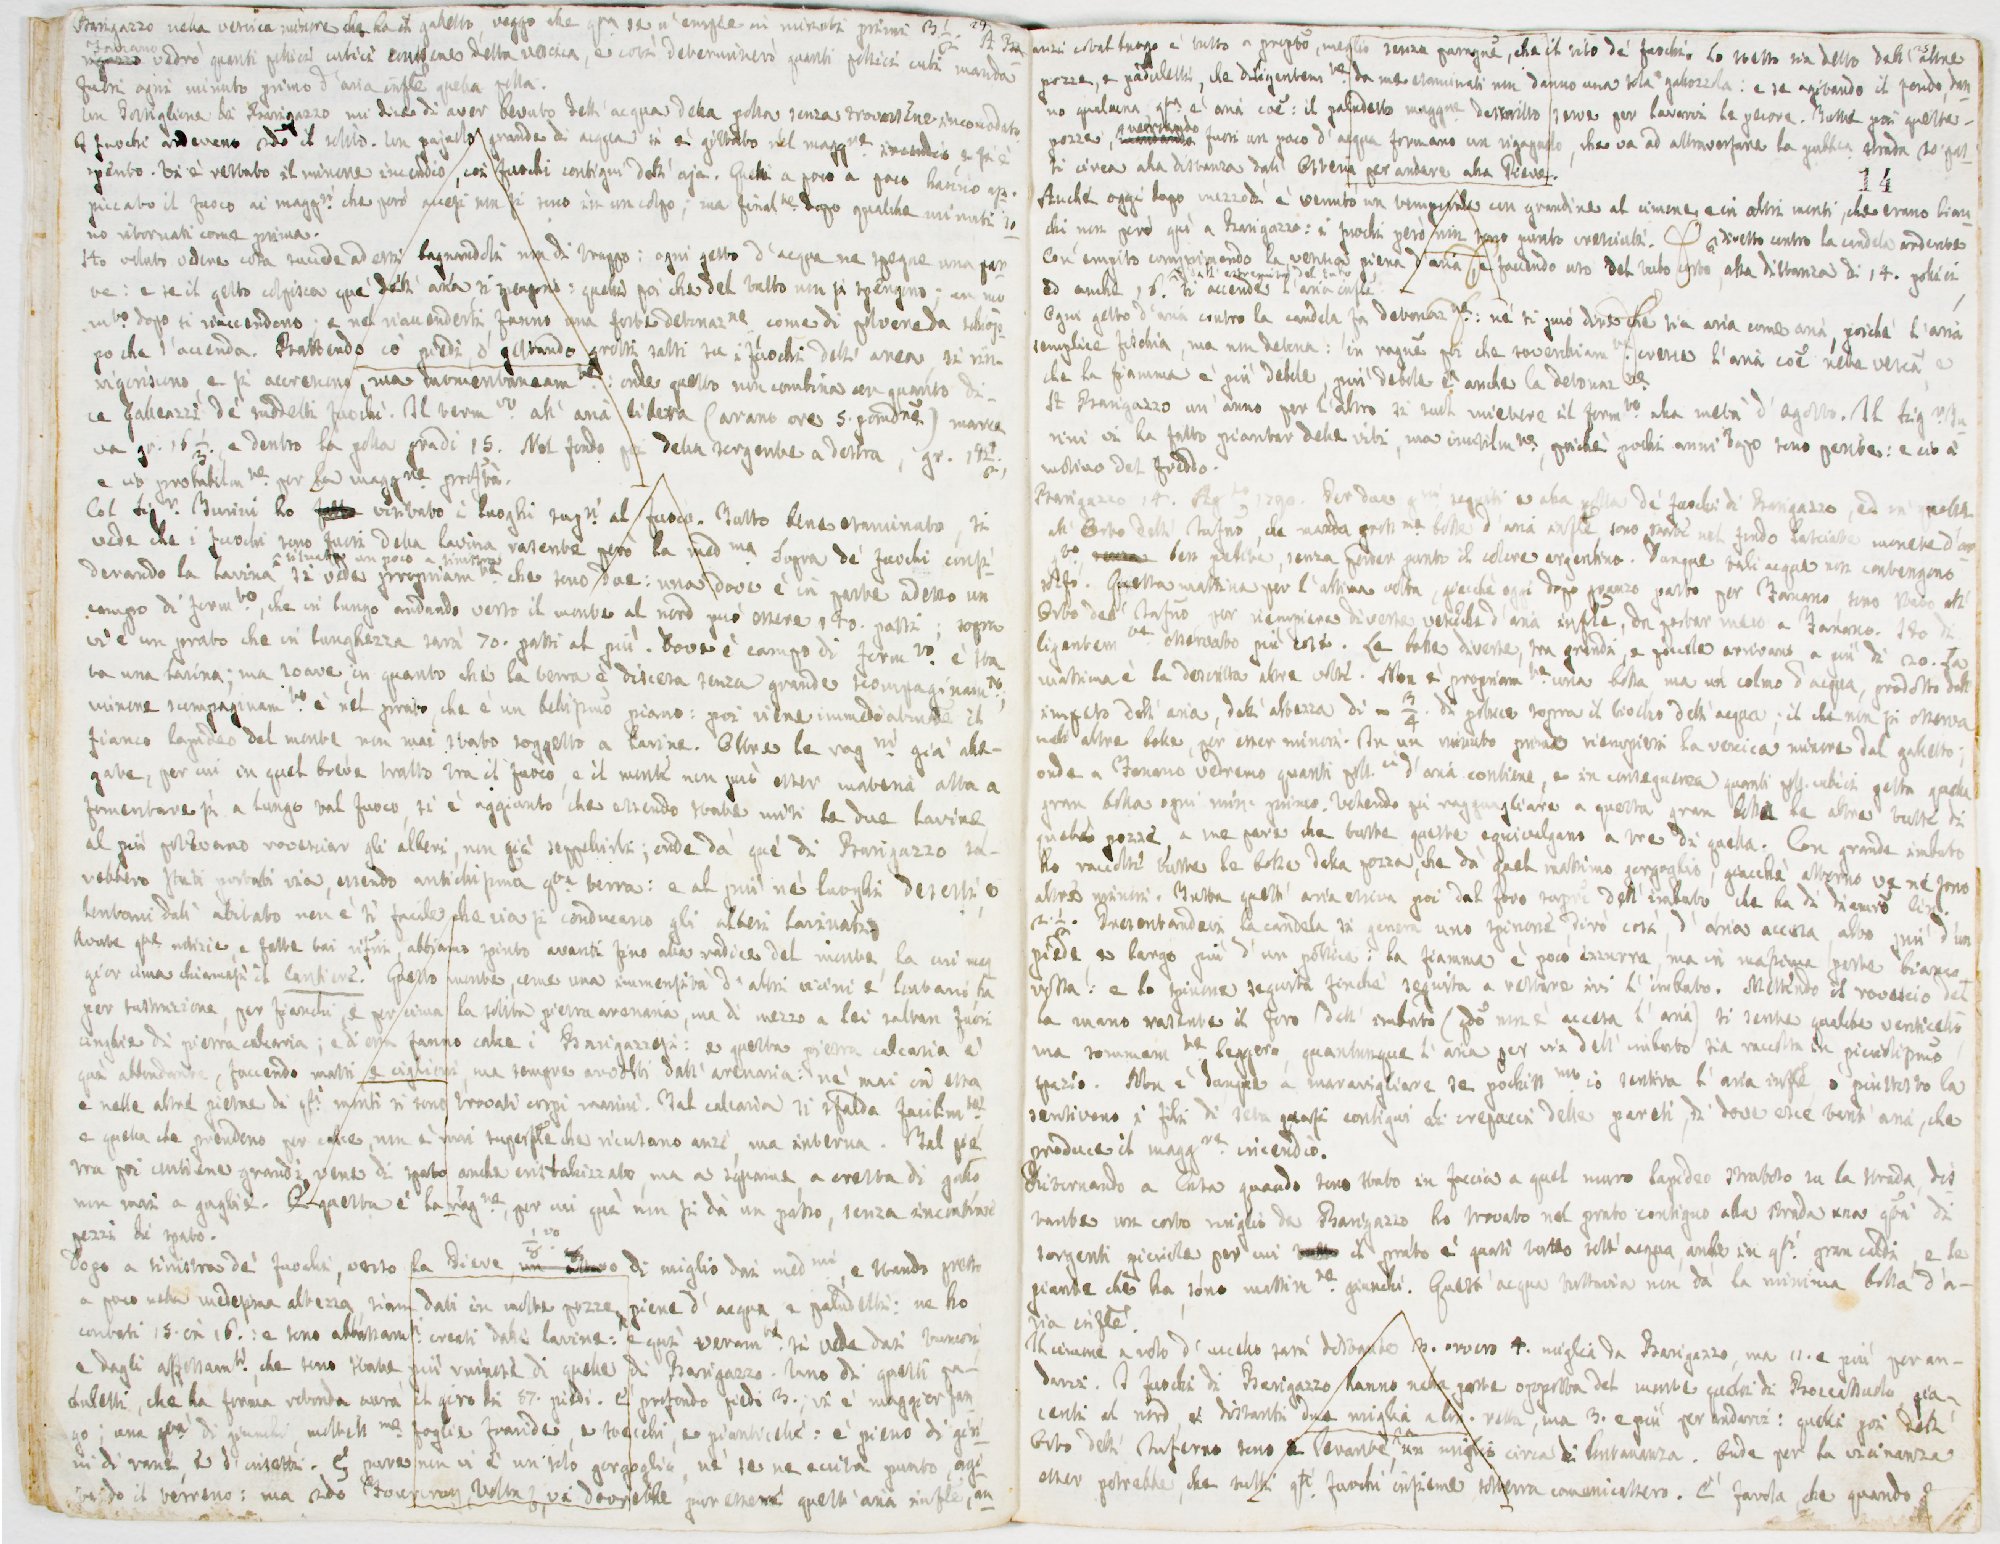 Barigazzo nella vescica minore che ha il galletto, veggo che qta se n'empie in minuti primi 3 1/2. A Fa=
nano vedrò quanti pollici cubici contiene detta vescica, e così determinerò quanti pollici cubi manda
fuori ogni minuto primo d'aria infle quella polla.
Un Postiglione di Barigazzo mi dice di aver bevuto dell'acqua della polla senza trovarsene incomodato.
I fuochi ardevano sdo il solito. Un pajuolo grande di acqua si è gittato nel maggre incendio, e si è
spento. Vi è restato il minore incendio, coi fuochi contigui dell'aja. Quelli a poco a poco hanno ap=
piccato il fuoco ai maggri che però accesi non si sono in un colpo; ma finalte dopo qualche minuti so=
no ritornati come prima.
Ho voluto vedere cosa succede ad essi bagnandoli non di troppo: ogni getto d'acqua ne spegne una par=
te: e se il getto colpisca que' dell'aria, si spengono: quelli poi che del tutto non si spengono, un mo=
mto dopo si riaccendono; e nel riaccendersi fanno una forte detonazne come di polvere da schiop=
po che s'accenda. Battendo co' piedi, o gettando grossi sassi su i fuochi dell'area, si rin=
vigoriscono e si accrescono, ma momentaneamte: onde questo non combina con quanto di=
ce Galeazzi de' suddetti fuochi. Il termto all'aria libera (erano ore 5. pomdne) marca
va gr. 16 1/3. e dentro la polla gradi 15. Nel fondo poi della sorgente a destra, gr. 14 1/2;
e ciò probabilmte per la maggre profdtà.
Col Sigr. Turini ho visitato i luoghi sugri al fuoco. Tutto bene esaminato, si
vede che i fuochi sono fuori della lavina rasente però la medma. Sopra de' fuochi consi=
derando la lavina situata un poco a sinistra si vede propriamte che sono due: una dove è in parte adesso un
campo di formto, che in lungo andando verso il monte al nord può essere 180. passi; sopra
vi è un prato che in lunghezza sarà 70. passi al più. Dove è campo di formto è sta
ta una lavina; ma soave, in quanto che la terra è discesa senza grande scompaginamto;
minore scompaginamto è nel prato, che è un bellissimo piano: poi viene immediatamte il
fianco lapideo del monte non mai stato soggetto a lavine. Oltre le ragni già alle=
gate, per cui in quel breve tratto tra il fuoco, e il monte non può esser materia atta a
fomentare sì a lungo tal fuoco, si è aggiunto, che essendo state miti le due lavine,
al più potevano rovesciar gli alberi, non già seppellirli; onde da que' di Barigazzo sa=
rebbero stati portati via, essendo antichissima qta terra: e al più ne' luoghi deserti, e
lontani dall'abitato non è sì facile che via si conducano gli alberi lavinati.
Avute qte notizie, e fatte tai riflni, abbiamo spinto avanti fino alla radice del monte, la cui mag
gior cima chiamasi il Cantiere. Questo monte, come una immensità d'altri vicini e lontani ha
per sustruzione, per fianchi, e per cima la solita pietra arenaria, ma di mezzo a lei saltan fuori
cinghie di pietra calcaria; e di essa fanno calce i Barigazzesi: e questa pietra calcaria è
qua abbondante, facendo massi e ciglioni, ma sempre avvolti dall'arenaria: né mai in essa
e nelle altre pietre di qsti monti si sono trovati corpi marini. Tal calcaria si sfalda facilmte
e quella che prendono per calce, non è mai superfle che ricusano anzi, ma interna. Tal pie
tra poi contiene grandi vene di spato anche cristallizzato, ma a squame, a cresta di gallo
non mai a guglie. E questa è la ragne, per cui quà non si dà un passo, senza incontrare
pezzi di spato.
Dopo a sinistra de' fuochi, verso la Pieve, 1/3to di miglio dai medmi, e stando presso
a poco nella medesma altezza, siam dati in molte pozze piene d'acqua e paludelli: ne ho
contati 15. in 16.: e sono abbassamti creati dalle lavine: e quà veramte si vede dai tumori,
e dagli abbassamti, che sono state più ruinose di quelle di Barigazzo. Uno di questi pa=
duletti, che ha forma rotonda avrà il giro di 57. piedi. È profondo piedi 3.; vi è maggior fan
go; una qtà di giunchi, moltissme foglie fracide, e stecchi, e pianticelle: è pieno di giri
ni di rane, e d'insetti. E pure non vi è un solo gorgoglio, né se ne eccita punto, agi
tando il terreno: ma sdo Fourcroy Volta, vi dovrebbe pur essere quest'aria infle, an
29
anzi cotal luogo è tutto a propto, meglio senza paragne, che il sito de' fuochi. Lo stesso sia detto dell'altre
pozze, e paduletti, che diligentemte da me esaminati non danno una sola gallozzola: e se agitando il fondo, dan
no qualcuna, qta è aria coe: il paludetto maggre descritto serve per lavarsi le pecore. Tutte poi queste
pozze, versando fuori un poco d'acqua formano un rigagnolo, che va ad attraversare la pubblica strada 10 pas=
si circa alla distanza dall'Osteria per andare alla Pieve.
14
Anche oggi dopo mezzodì è venuto un temporale con grandine al cimone e in altri monti, che erano bian
chi non però qui a Barigazzo: i fuochi però non sono punto cresciuti. diretto contro la candela ardente
Con empito comprimendo la vescica piena d'aria, e facendo uso del tubo curvo, alla distanza di 14. pollici
ed anche 16. dall'estremità del tubo si accende l'aria infle.
Ogni getto d'aria contro la candela fa detonazne: né si può dire che sia aria come aria, poiché l'aria
semplice fischia, ma non detona: in ragne poi che soverchiamte cresce l'aria coe nella vesca, e
che la fiamma è più debole, più debole è anche la detonazne.
A Barigazzo un anno per l'altro si suol mietere il formto alla metà d'agosto. Il Sigr Tu=
rini vi ha fatto piantar delle viti, ma inutilmte, poiché pochi anni dopo sono perite: e ciò a
motivo del freddo.
Barigazzo 14. Agto 1790. Per due gni seguiti e alla polla de' fuochi di Barigazzo, ed in quella
all'Orto dell'Inferno, che manda grossme bolle d'aria infle sono state nel fondo lasciate monete d'ar
gto ben pulite, senza perder punto il colore argentino. Dunque tali acque non contengono
solfo. Questa mattina per l'ultima volta, giacché oggi dopo pranzo parto per Fanano, sono stato all'
Orto dell'Inferno per riempiere diverse vesciche d'aria infle, da portar meco a Fanano. Ho di
ligentemte osservato più cose. Le bolle diverse, tra grandi, e piccole arrivano a più di 20. La
massima è la descritta altre volte. Non è propriamte una bolla, ma un colmo d'acqua, prodotto dall'
impeto dell'aria, dell'altezza di 3/4. di pollice sopra il livello dell'acqua; il che non si osserva
nell'altre bolle, per esser minori. In un minuto primo riempiesi la vescica minore dal galletto;
onde a Fanano vedremo quanti poll.ci d'aria contiene, e in conseguenza quanti poll. cubici getta quella
gran bolla ogni min. primo. Volendo poi ragguagliare a questa gran bolla le altre tutte di
quella pozza, a me pare che tutte queste equivalgano a tre di quella. Con grande imbuto
ho raccolti tutte le bolle della pozza, che dà quel massimo gorgoglio, giacché attorno ve ne sono
altre minori. Tutta quest'aria esciva poi dal foro supre dell'imbuto che ha di diamro lin.
2. 1/2. Presentandovi la candela si genera uno spinone, dirò così, d'aria accesa, alto più d'un
piede, e largo più d'un pollice: la fiamma è poco azzurra, ma in massima parte bianco=
rossa: e lo spinone seguita finché seguita a restare ivi l'imbuto. Mettendo il rovescio del
la mano rasente il foro dell'imbuto (qdo non è accesa l'aria) si sente qualche venticello
ma sommamte leggero, quantunque l'aria per via dell'imbuto sia raccolta in piccolissimo
spazio. Non è dunque a maravigliare se pochissmo io sentiva l'aria infle, o piuttosto la
sentivano i fili di seta quasi contigui ai crepacci delle pareti, di dove esce tant'aria, che
produce il maggre incendio.
Ritornando a Casa quando sono stato in faccia a quel muro lapideo strattoso su la strada, dis
tante un corto miglio da Barigazzo ho trovato nel prato contiguo alla strada una qtà di
sorgenti piccole per cui il prato è quasi tutto sott'acqua, anche in qsti gran caldi, e le
piante che ha, sono massimte giunchi. Quest'acqua tuttavia non dà la minima bolla d'a=
ria infle.
Il cimone a volo d'uccello sarà distante 3. ovvero 4. miglia da Barigazzo, ma 11. e più per an=
darvi. I fuochi di Barigazzo hanno nella parte opposta del monte quelli di Boccassuolo, gia=
centi al nord, e distanti due miglia a lin. retta, ma 3. e più per andarvi: quelli poi dell'
Orto dell'Inferno sono a levante, un miglio circa di lontananza. Onde per la vicinanza
esser potrebbe, che tutti qsti fuochi insieme sotterra comunicassero. È favola che quando è